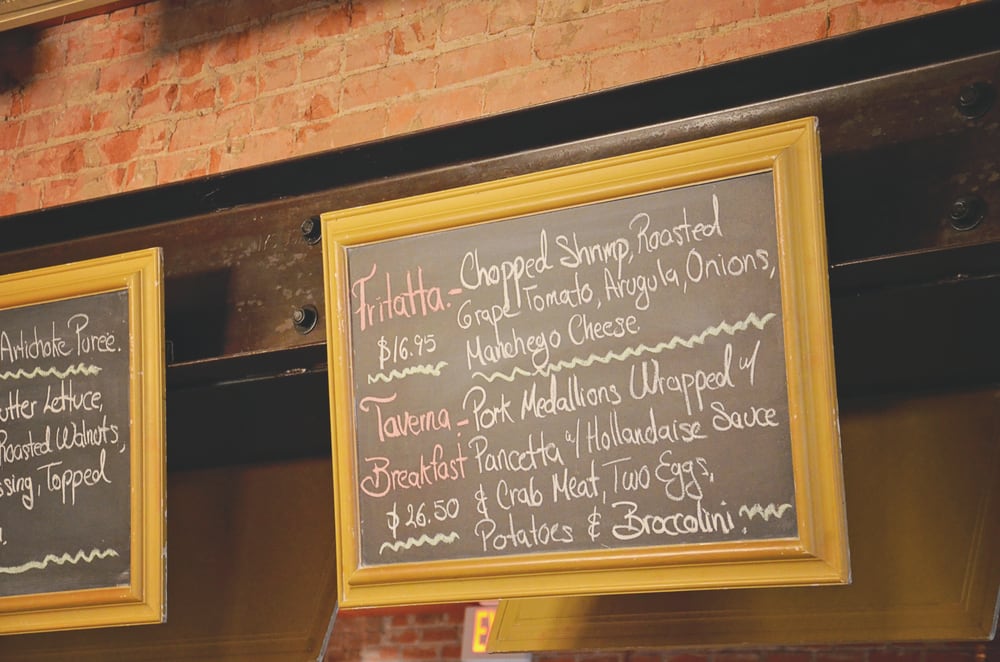 Artichoke Puree.
utter Lettuce,
Roasted Walnuts,
ssing, Topped
Fritatta - Chopped Shrimp, Roasted
Grape Tomato, Arugula, Onions,
$16.95 Manchego Cheese
Taverna - Pork Medallions Wrapped w/
Breakfast Pancetta w/ Hollandaise Sauce
$26.50 & Crab Meat, Two Eggs,
Potatoes & Broccolini.
E